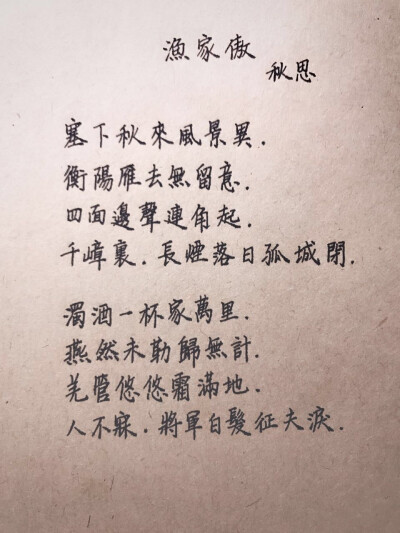 漁家傲
秋思
塞下秋來風景異.
衡陽雁去無留意.
四面邊聲連角起.
千嶂裏.長煙落日孤城閉.
濁酒一杯家萬里.
燕然未勒歸無計.
羌管悠悠霜滿地.
人不寐.將軍白髮征夫淚.